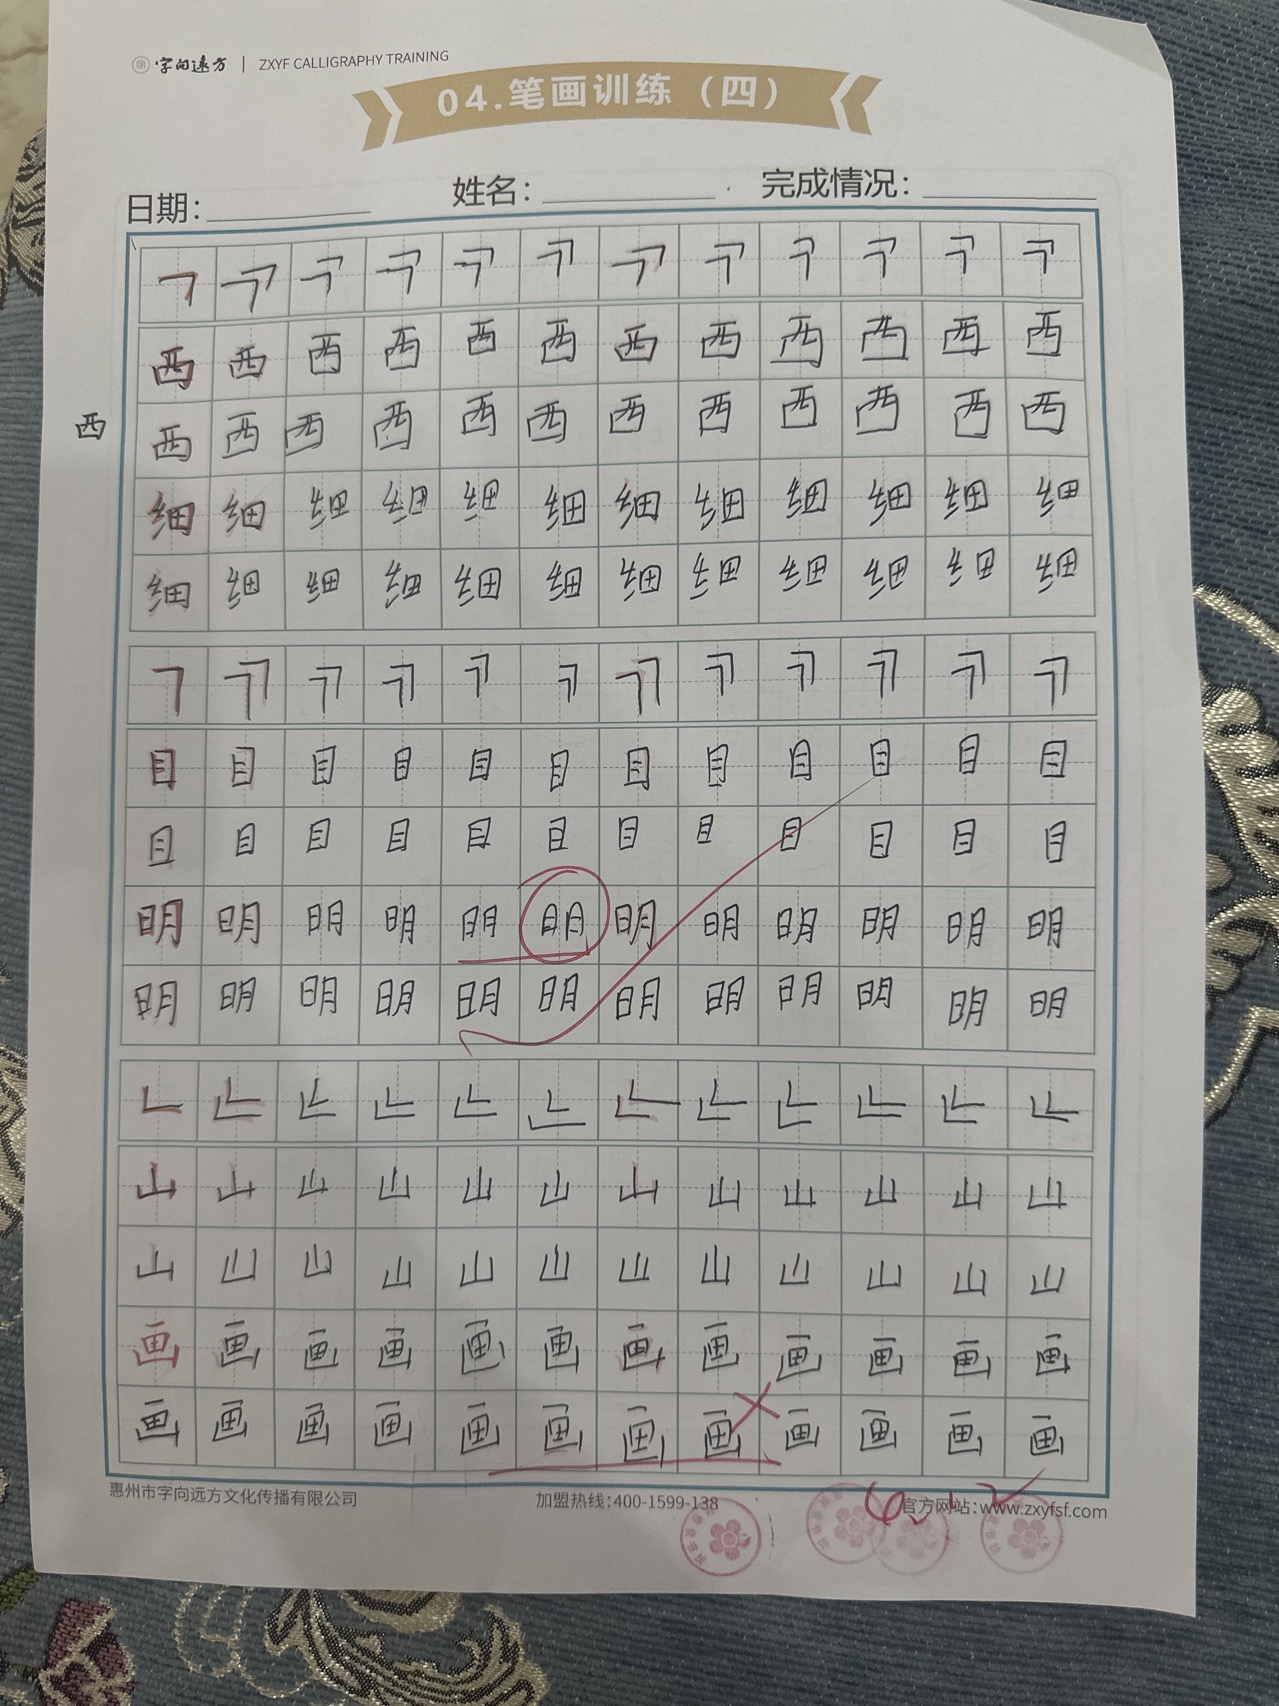 字向远方 | ZXYF CALLIGRAPHY TRAINING
04.笔画训练（四）
日期： 姓名： 完成情况：
西 西 西 西 西 西 西 西 西 西 西 西
西 西 西 西 西 西 西 西 西 西 西 西 西
细 细 细 细 细 细 细 细 细 细 细 细
细 细 细 细 细 细 细 细 细 细 细 细
目 目 目 目 目 目 目 目 目 目 目 目
目 目 目 目 目 目 目 目 目 目 目 目
明 明 明 明 明 明 明 明 明 明 明 明
明 明 明 明 明 明 明 明 明 明 明 明
山 山 山 山 山 山 山 山 山 山 山 山
山 山 山 山 山 山 山 山 山 山 山 山
画 画 画 画 画 画 画 画 画 画 画 画
画 画 画 画 画 画 画 画 画 画 画 画
惠州市字向远方文化传播有限公司 加盟热线：400-1599-138 官方网站：www.zxyfsf.com